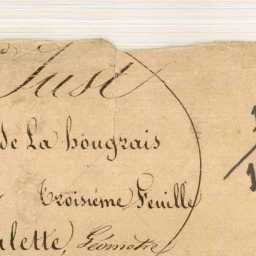 Just
de La hougrais
Troisiéme Feuille
lette, Géomètre